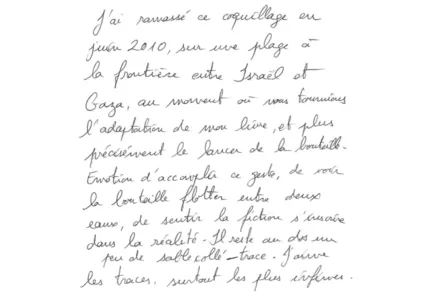 J'ai ramassé ce coquillage en
juin 2010, sur une plage à
la frontière entre Israël et
Gaza, au moment où nous tournions
l'adaptation de mon livre, et plus
précisément le lancer de la bouteille.
Emotion d'accomplir ce geste, de voir
la bouteille flotter entre deux
eaux, de sentir la fiction s'inscrire
dans la réalité. Il reste au dos un
peu de sable collé - trace. J'aime
les traces, surtout les plus infimes.